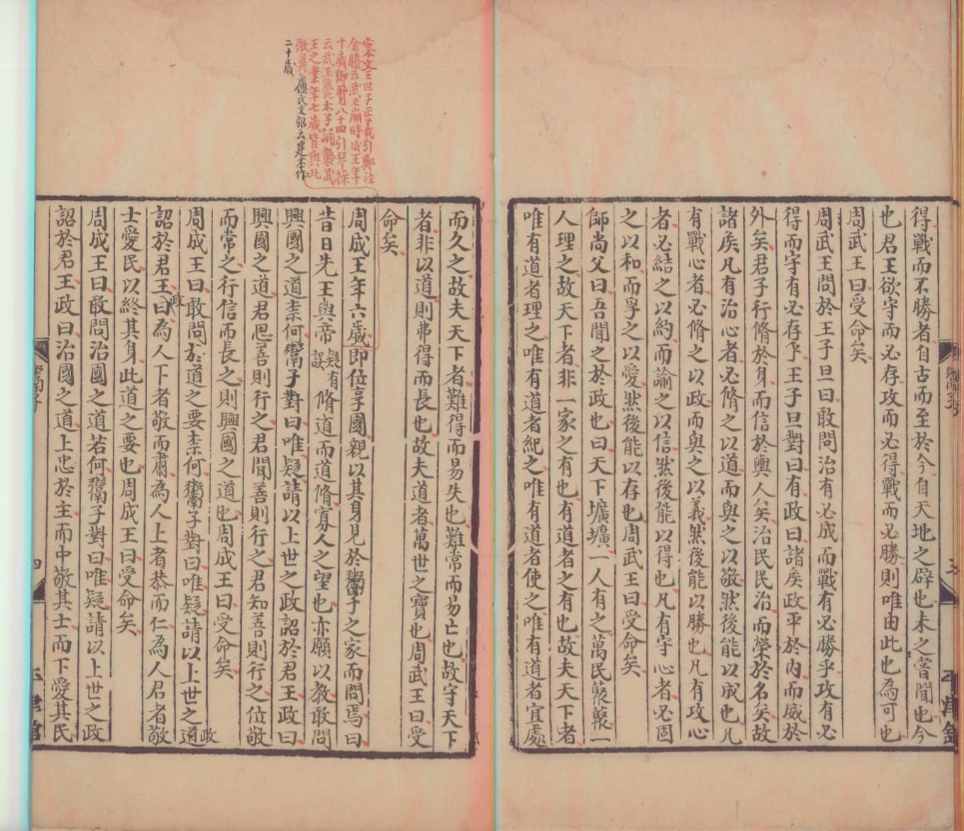 得戰而不勝者自古而至於今自天地之辟也未之嘗聞也今
也君王欲守而必存攻而必得戰而必勝則唯由此也為可也
周武王曰受命矣
周武王問於王子旦曰敢問治有必成而戰有必勝乎攻有必
得而守有必存乎王子旦對曰有政曰諸矦政平於內而威於
外矣君子行脩於身而信於輿人矣治民民治而榮於名矣故
諸矦凡有治心者必脩之以道而與之以敬然後能以成也凡
有戰心者必脩之以政而與之以義然後能以勝也凡有攻心
者必結之以約而諭之以信然後能以得也凡有守心者必固
之以和而孚之以愛然後能以存也周武王曰受命矣
師尚父曰吾聞之於政也曰天下壙壙一人有之萬民藂藂一
人理之故天下者非一家之有也有道者之有也故夫天下者
唯有道者理之唯有道者紀之唯有道者使之唯有道者宜處
而久之故夫天下者難得而易失也難常而易亡也故守天下
者非以道則弗得而長也故夫道者萬世之寶也周武王曰受
命矣
周成王年六歲即位享國親以其身見於鬻子之家而問焉曰
昔日先王與帝疑有誤脩道而道脩寡人之望也亦願以教敢問
興國之道柰何鬻子對曰唯疑請以上世之政詔於君王政曰
興國之道君思善則行之君聞善則行之君知善則行之位敬
而常之行信而長之則興國之道也周成王曰受命矣
周成王曰敢問於道之要柰何鬻子對曰唯疑請以上世之道政
詔於君王政曰為人下者敬而肅為人上者恭而仁為人君者敬
士愛民以終其身此道之要也周成王曰受命矣
周成王曰敢問治國之道若何鬻子對曰唯疑請以上世之政
詔於君王政曰治國之道上忠於主而中敬其士而下愛其民
文王世子正義引鄭注
金縢云武王崩時成王年
十歲御覽八十四引琴操
云武王薨太子誦襲武
王之業年七歲皆與此
微異盧氏文弨云建本作
二十歲
鬻子
四
平津館